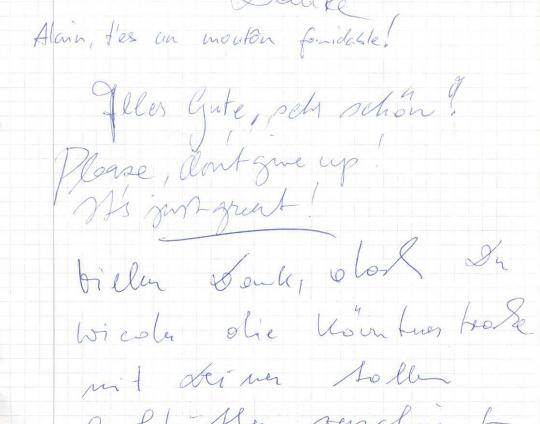 Danke
Alain, t'es un mouton formidable!
Alles Gute, sehr schön!
Please, don't give up!
It's just great!
Vielen Dank, dass Du
wieder die Kärntnerstraße
mit Deiner tollen